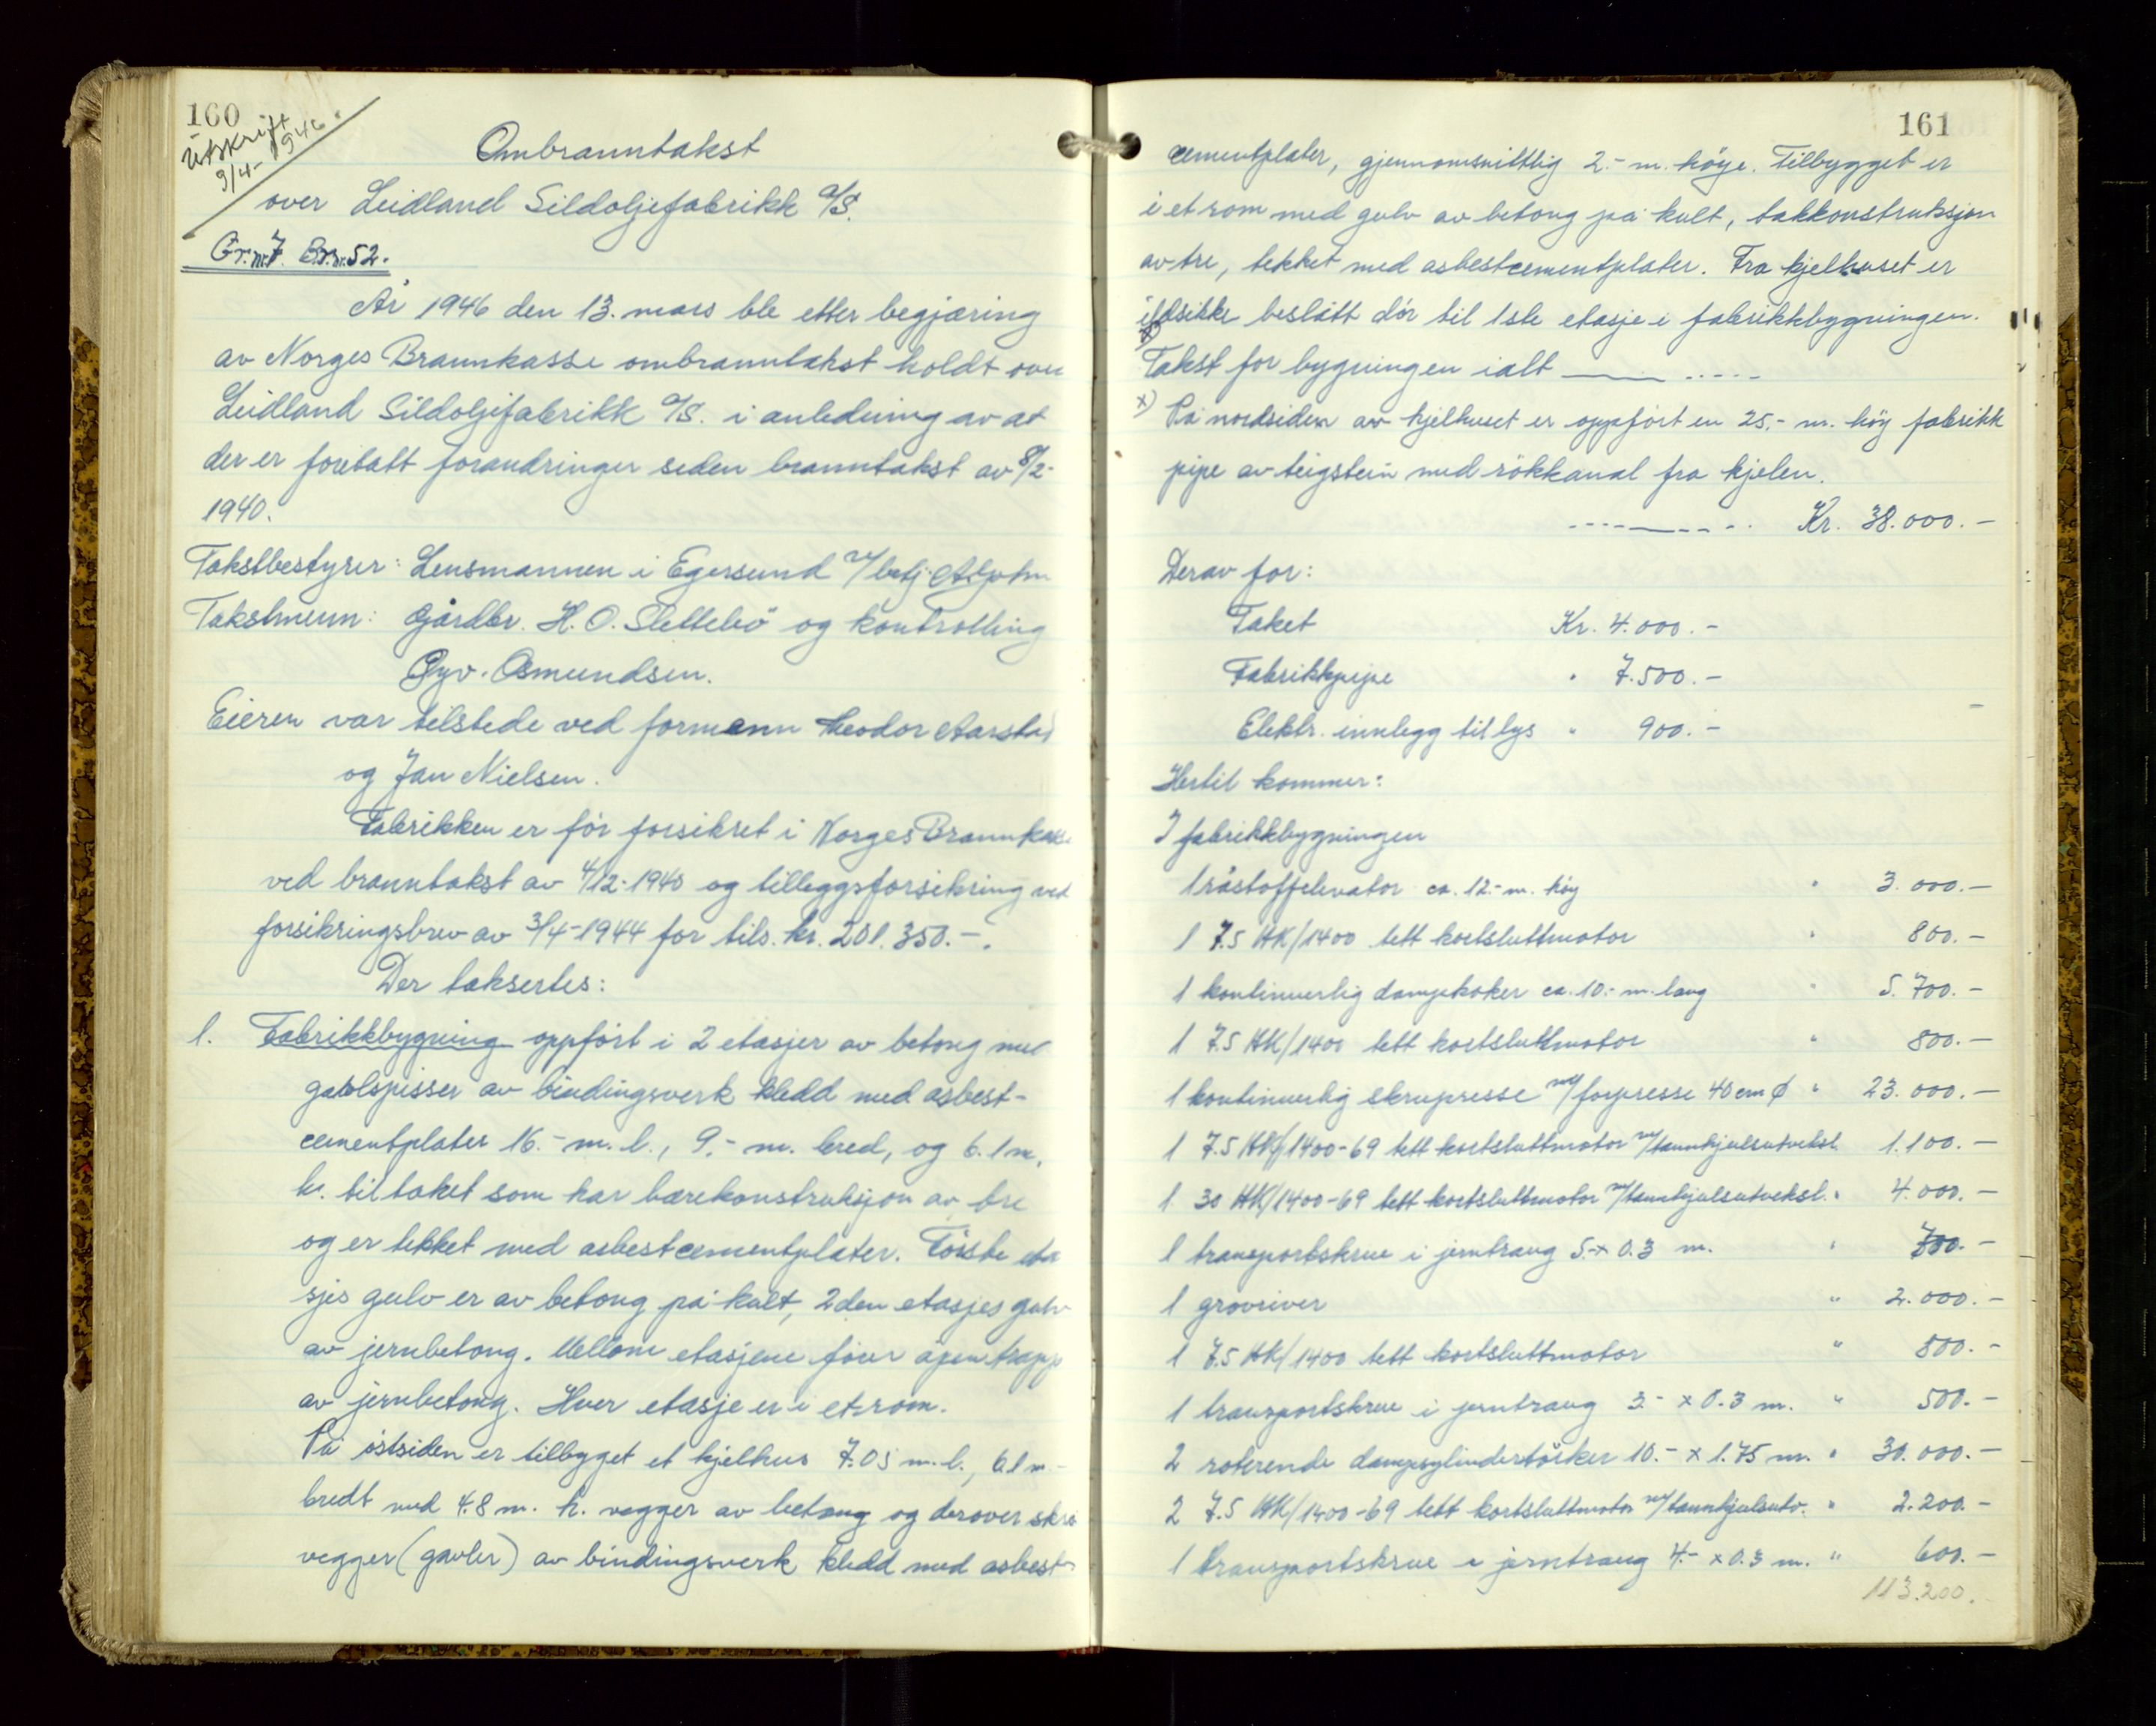 160
Utskrift
9/4- 1946.
Ombranntakst
over Leidland Sildoljefabrikk A/S.
Gr.nr. 7. Br.nr. 52.
År 1946 den 13. mars ble etter begjæring
av Norges Brannkasse ombranntakst holdt over
Leidland Sildoljefabrikk A/S. i anledning av at
der er foretatt forandringer siden branntakst av 8/2-
1940.
Takstbestyrer: Lensmannen i Egersund v/betj.
Takstmenn: Gårdbr. H. O. Slettebö og kontrolling
Gyv. Osmundsen.
Eieren var telstede ved formann Theodor Aarstad
og Jan Nielsen.
Fabrikken er för forsikret i Norges Brannkasse
ved branntakst av 4/12-1940 og tilleggsforsikring ved
forsikringsbrev av 3/4-1944 for tils. kr. 201.350.-.
Der taksertes:
1. Fabrikkbygning oppfört i 2 etasjer av betong med
gavlspisser av bindingsverk kledd med asbest-
cementplater 16.- m. l., 9.- m. bred, og 6.1 m.
h. til taket som har bærekonstruksjon av tre
og er tekket med asbestcementplater. Förste eta
sjes gulv er av betong på kult, 2den etasjes gulv
av jernbetong. Mellom etasjene förer åpen trapp
av jernbetong. Hver etasje er i et rom.
På östsiden er tilbygget et kjelhus 7.05 m. l., 6.1 m
bredt med 4.8 m. h. vegger av betong og derover skrå
vegger (gavler) av bindingsverk kledd med asbest-
161
cementplater, gjennomsnittlig 2.- m. höye. Tilbygget er
i et rom med gulv av betong på kult, takkonstruksjon
av tre, tekket med asbestcementplater. Fra kjelhuset er
ildsikker beslått dör til 1ste etasje i fabrikkbygningen.
x)
Takst for bygningen ialt ——— .....
x) På nordsiden av kjelhuset er oppfört en 25.- m. höy fabrikk
pipe av teigstein med rökkanal fra kjelen.
----——---. Kr. 38.000.-
Derav for:
Taket Kr. 4.000.-
Fabrikkpipe " 7.500.-
Elektr. innlegg til lys " 900.-
Hertil kommer:
I fabrikkbygningen
1 råstoffelevator ca. 12.- m. höy " 3.000.-
1 7.5 HK/1400 tett kortsluttmotor " 800.-
1 kontinuerlig dampkoker ca. 10.- m. lang " 5.700.-
1 7.5 HK/1400 tett kortsluttmotor " 800.-
1 kontinuerlig skrupresse m/forpresse 40 cm ϕ " 23.000.-
1 7.5 HK/1400-69 tett kortsluttmotor m/tannhjulsutveksl. 1.100.-
1 30 HK/1400-69 tett kortsluttmotor m/tannhjulsutveksl. " 4.000.-
1 transportskrue i jerntraug 5.- x 0.3 m. " 700.-
1 grovriver " 2.000.-
1 7.5 HK/1400 tett kortsluttmotor " 800.-
1 transportskrue i jerntraug 3.- x 0.3 m. " 500.-
2 roterende dampsylindertörker 10.- x 1.75 m. " 30.000.-
2 7.5 HK/1400-69 tett kortsluttmotor m/tannhjulsutv. " 2.200.-
1 transportskrue i jerntraug 4.- x 0.3 m. " 600.-
113.200.